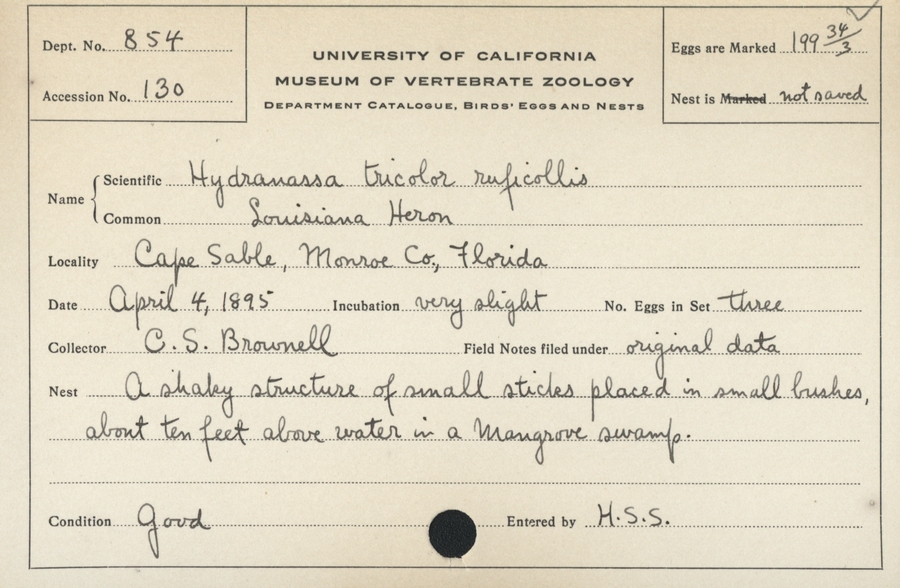 Dept. No. 854
Accession No. 130
UNIVERSITY OF CALIFORNIA
MUSEUM OF VERTEBRATE ZOOLOGY
DEPARTMENT CATALOGUE, BIRDS' EGGS AND NESTS
Eggs are Marked 199 34/3
Nest is Marked not saved
Name
Scientific Hydranassa tricolor ruficollis
Common Louisiana Heron
Locality Cape Sable, Monroe Co., Florida
Date April 4, 1895 Incubation very slight No. Eggs in Set three
Collector C. S. Brownell Field Notes filed under original data
Nest A shaky structure of small sticks placed in small bushes,
about ten feet above water in a Mangrove swamp.
Condition Good Entered by H.S.S.